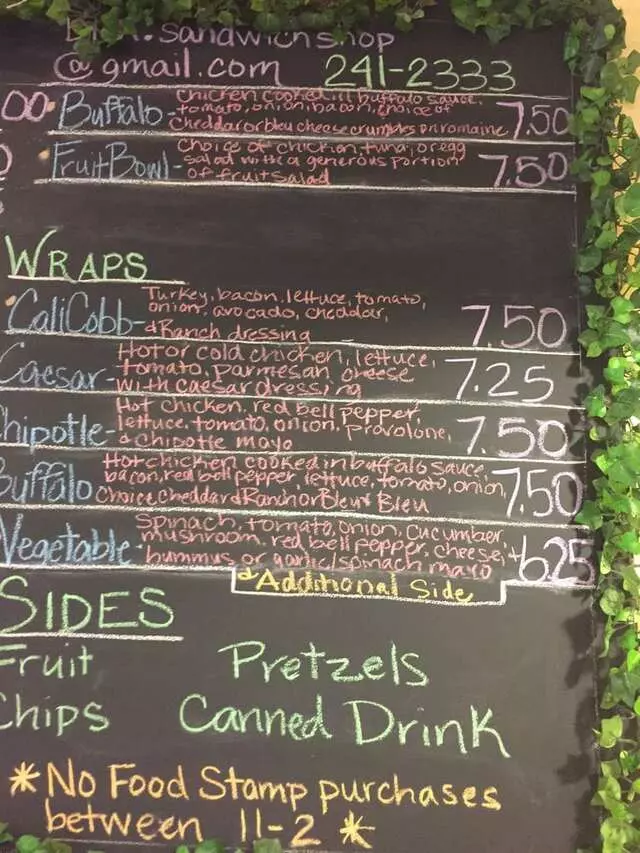 .sandwich shop
@gmail.com 241-2333
00 Buffalo - chicken cooked in buffalo sauce,
tomato, onion, bacon, choice of
cheddar or bleu cheese crumbles on romaine 7.50
Fruit Bowl - Choice of chicken, tuna, or egg
salad with a generous portion
of fruit salad 7.50
WRAPS
Cali Cobb - Turkey, bacon, lettuce, tomato,
onion, avocado, cheddar,
& Ranch dressing 7.50
Caesar - Hot or cold chicken, lettuce,
tomato, parmesan, cheese
with caesar dressing 7.25
Chipotle - Hot chicken, red bell pepper,
lettuce, tomato, onion, provolone,
& Chipotle mayo 7.50
Buffalo Hot chicken cooked in buffalo sauce,
bacon, red bell pepper, lettuce, tomato, onion,
Choice Cheddar & Ranch or Bleu & Bleu 7.50
Vegetable - Spinach, tomato, onion, cucumber,
mushroom, red bell pepper, cheese, +
hummus or garlic/spinach mayo 6.25
& Additional Side
SIDES
Fruit Pretzels
Chips Canned Drink
* No Food Stamp purchases
between 11-2 *